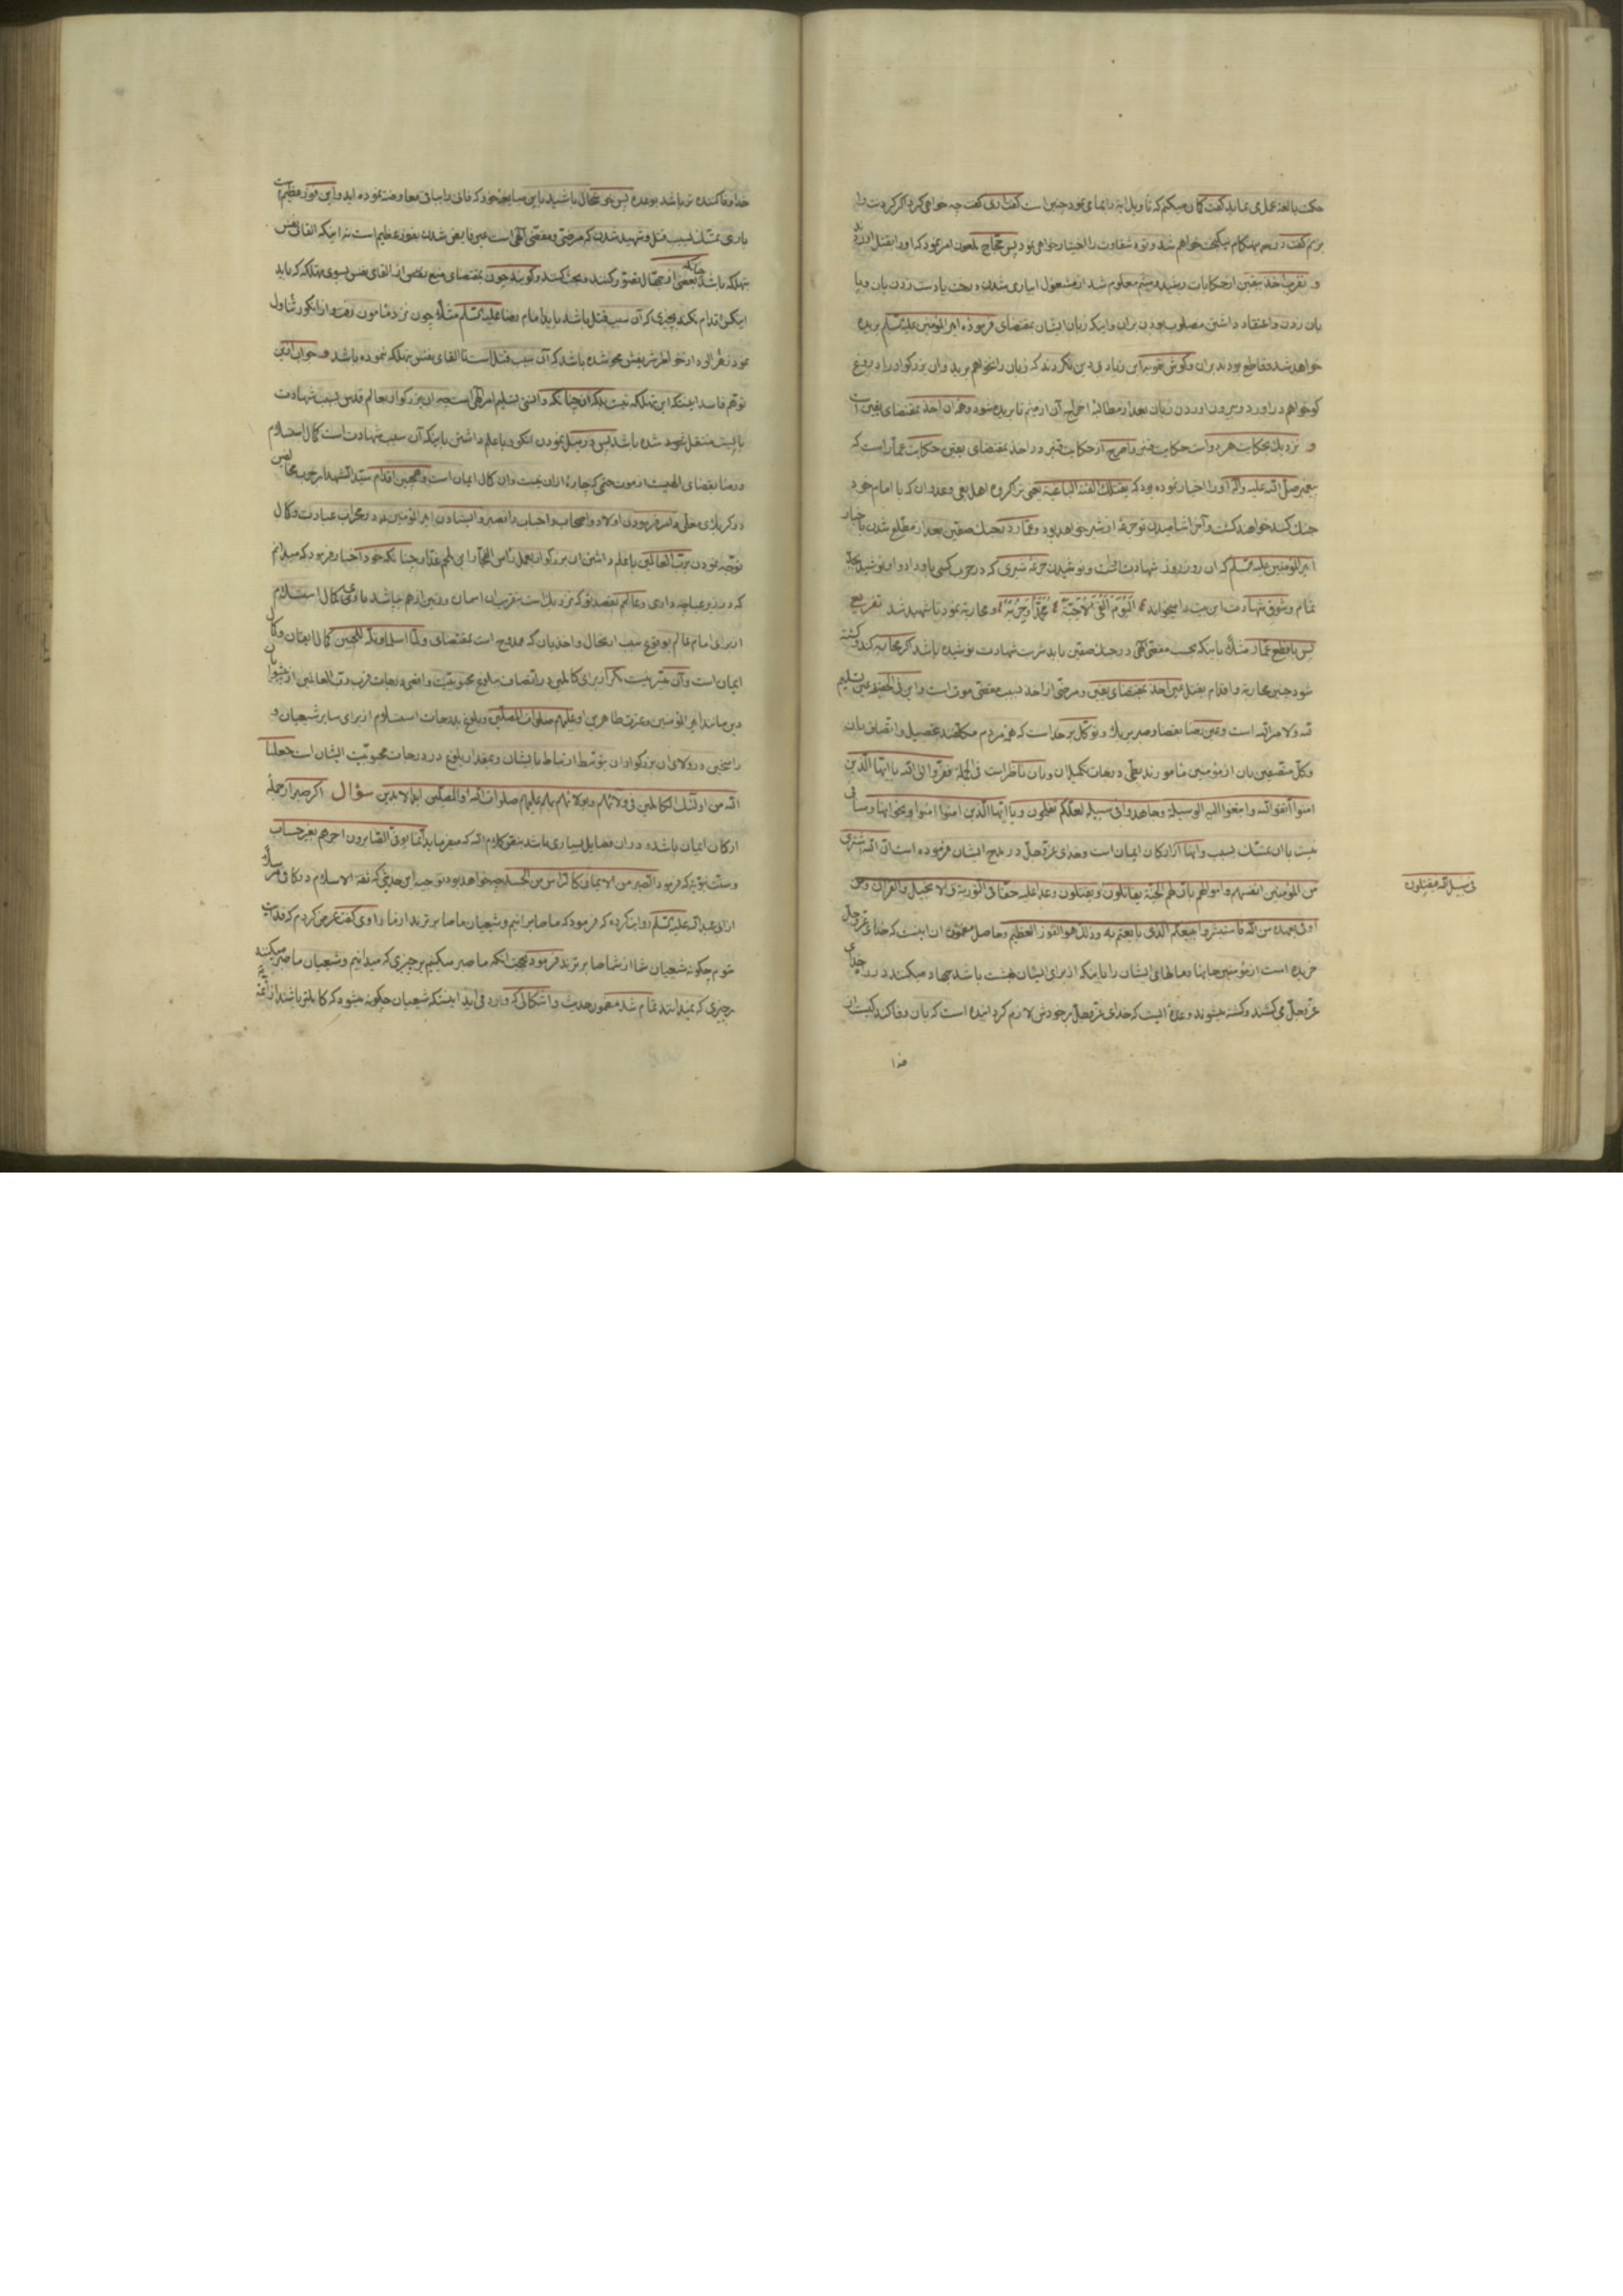 حکمت بالغه عمل می نماید گفت کمان میکنم که تاویل ایه را بما می نمود چنین است گفت اری گفت چه خواهی کرد اگر گردنت را
بزنم گفت در هم نیکبخت خواهم شد و تو شقاوت را اختیار خواهی نمود پس حجاج ملعون امر نمود که او را بقتل
و بقرب اخذ بیقین از حکایات رشید و میثم معلوم شد از مشغول ابیاری شدن درخت یا دست زدن بان و پا
بان زدن و اعتقاد داشتن مصلوب بودن بران و اینکه زبان ایشان بمقتضای فرموده امیر المؤمنین علیه السلم بریده
خواهد شد و قاطع بودند بران و گوش بقول ابن زیاد بی دین نکردند که زبان را نخواهم برید وان بزرگوار را دروغ
گو خواهم در اورد و بیرون اوردن زبان بعد از مطالبه از میثم تا بریده شود و همه ان اخذ بمقتضای یقین است
و نزدیک بحکایت هر دو است حکایت قنبر و اصرح از حکایت قنبر در اخذ بمقتضای یقین حکایت عمار است که
پیغمبر صلی الله علیه و اله او را اخبار نموده بود که یقتلک الفئة الباغیة یعنی ترا گروه اهل بغی و عدوان که با امام خود
جنک کند خواهد کشت و اخر اشامیدن تو جرعه از شیر خواهد بود و عمار در جنک صفین بعد از مطلع شدن باخبار
امیر المؤمنین علیه السلم که ان روز روز شهادت تست و نوشیدن جرعه شیری که در حرب کسی باو داد و او نوشید بجد
تمام و شوق شهادت این بیت را میخواند الیوم القی الاحبة محمدا و حزبه و محاربه نمود تا شهید شد تفریع
پس با قطع عمار مثلا باینکه بحسب مقتضی الهی در جنک صفین باید شربت شهادت نوشیده باشد اگر محاربه کند و کشته
شود چنین محاربه و اقدام بقتل عین اخذ بمقتضای یقین و مرضی از اخذ بسبب مقتضی موت است و این فی الحقیقة عین تسلیم
لله و لامر الله است و عین رضا بقضا و صبر بر بلا و توکل بر خدا است که همه مردم مکلفند بتحصیل و اتصاف بان
و کل متصفین بان از مؤمنین مامورند بطی درجات تکمیل ان و بان ناظر است فی الجملة ففروا الی الله یا ایها الذین
امنوا اتقوا الله و ابتغوا الیه الوسیلة و جاهدوا فی سبیله لعلکم تفلحون و یا ایها الذین امنوا امنوا و نحو اینها و منافی
نیست با ان تمسک بسبب و اینها از ارکان ایمان است و خدای عز و جل در مدح ایشان فرموده است ان الله اشتری
من المؤمنین انفسهم و اموالهم بان لهم الجنة یقاتلون و یقتلون وعدا علیه حقا فی التوریة و الانجیل و القران و من
فی سبیل الله فیقتلون
اوفی بعهده من الله فاستبشروا ببیعکم الذی بایعتم به و ذلک هو الفوز العظیم و حاصل مضمون ان اینست که خدای عز و جل
خریده است از مؤمنین جانها و مالهای ایشان را باینکه از برای ایشان بهشت باشد جهاد میکنند در راه خدای
عز و جل می کشند و کشته میشوند وعده ایست که خدای عز و جل بر خودش لازم گردانیده است که بان وفا کند کیست ان
خدا
خدا وفا کننده تر باشد بوعده پس خوشحال باشید باین مبایعه خود که فانی را بباقی معاوضه نموده اید و این فوز عظیم است
باری تمسک بسبب قتل و شهید شدن که مرضی و مقتضی الهی است عین فایض شدن بفوز عظیم است نه اینکه القای نفس
بتهلکه باشد چنانکه بعضی از جهال تصور کنند و بحث کنند و گویند چون بمقتضای منع نص از القای نفس بسوی تهلکه که باید
اینکس اقدام نکند بچیزی که آن سبب قتل باشد باید امام رضا علیه السلم مثلا چون نزد مامون رفت و از انگور تناول
نمود زهر الود از خاطر شریفش محو شده باشد که آن سبب قتل است تا القای نفس بتهلکه نموده باشد و جواب این
توهم فاسد اینستکه این تهلکه نیست بلکه ان چنانکه دانستی تسلیم امر الهی است چه ان بزرگوار بعالم قدس بسبب شهادت
بایست منتقل شود شده باشد پس در میل نمودن انگور با علم داشتن باینکه آن سبب شهادت است کمال استسلام
و رضا بقضای الهیست از موت حتمی که چاره ازان نیست وان کمال ایمان است و همچنین اقدام سید الشهدا بحرب مخالفین
در کربلای معلی و امر فرمودن اولاد و اصحاب و احباب را بصبر و ایستادن امیر المؤمنین در محراب عبادت و کمال
توجه نمودن برب العالمین با علم داشتن ان بزرگوار بعمل راس الفجار ابن ملجم غدار چنانکه خود اخبار فرمود که میدانم
که در زیر عبا چه داری و عالم بقصد تو که نزدیک است بقرب ان اسمان و زمین از هم بپاشد باوی کمال استسلام
از برای امام عالم بوقوع سبب ارتحال و اخذ بان که ممدوح است بمقتضای و لما اسلما و تله للجبین کمال ایقان و کمال
ایمان است و آن میسر نیست مگر از برای کاملین در اتصاف ببلوغ محبوبیت و اقصی درجات قرب رب العالمین از پیشوایان
دین مانند امیر المؤمنین و عترت طاهرین او علیهم صلوات المصلین و بلوغ بدرجات استسلام از برای سایر شیعیان و
راسخین در ولای ان بزرگواران بتوسط ارتباط بایشان و بمقدار بلوغ در درجات محبوبیت ایشان است جعلنا
الله من اولئک الکاملین فی ولائهم و بولائهم بهم علیهم صلوات الله و المصلین ابد الابدین سؤال اگر صبر از جمله
ارکان ایمان باشد و دران فضایل بسیاری باشد بنص کلام الله که میفرماید انما یوفی الصابرون اجرهم بغیر حساب
و سنت نبویه که فرمود الصبر من الایمان کالراس من الجسد چه خواهد بود توجیه این حدیثی که ثقة الاسلام در کافی مرسلا
از ابی عبد الله علیه السلم روایت کرده که فرمود که ما صابرانیم و شیعیان ما صابرترند از ما راوی گفت عرض کردم که فدایت
شوم چگونه شیعیان شما از شما صابرترند فرمود بجهت انکه ما صبر میکنیم بر چیزی که میدانیم و شیعیان ما صبر میکنند
بر چیزی که نمیدانند تمام شد مضمون حدیث و اشکالی که وارد می اید اینستکه شیعیان چگونه میشود که کاملتر باشند از ائمه